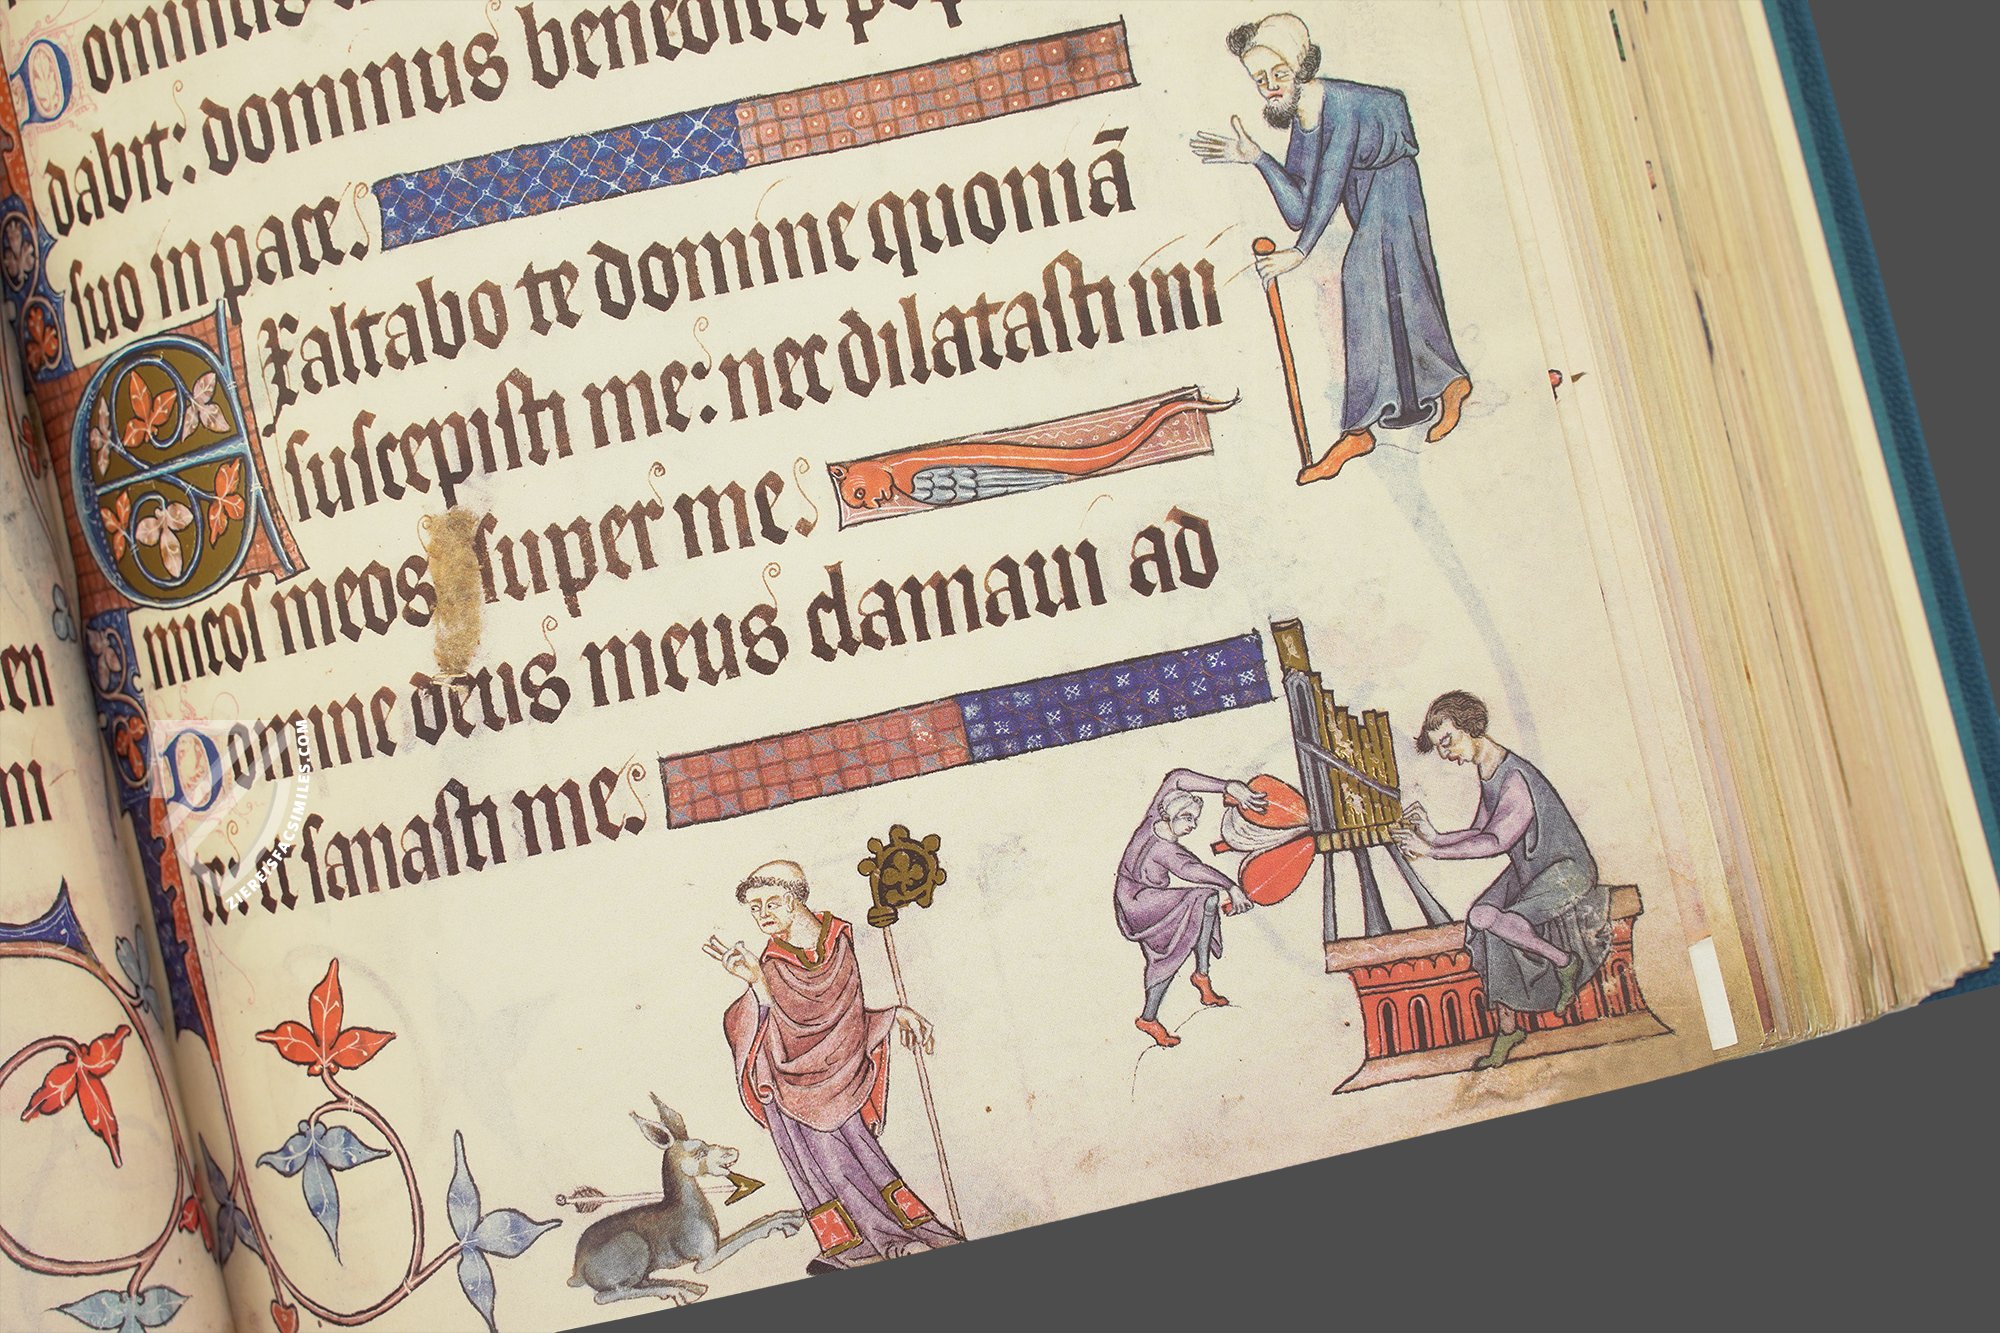 Dominus
dabit: dominus benedicet pop
suo in pace.
Exaltabo te domine quoniã
suscepisti me: nec dilatasti ini
micos meos super me.
Domine deus meus clamaui ad
te: et sanasti me.
en
ni
ZIEREISFACSIMILES.COM